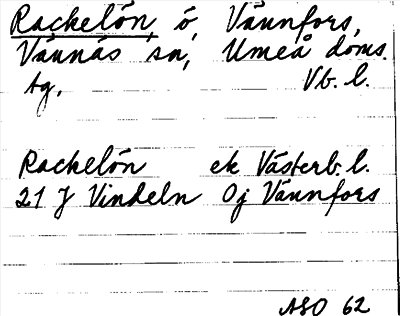 Rackelön, ö, Vännfors,
Vännäs sn, Umeå doms.
Ag, Vb. l.
Rackelön ek Västerb. l.
21 J Vindeln Oj Vännfors
ASO 62